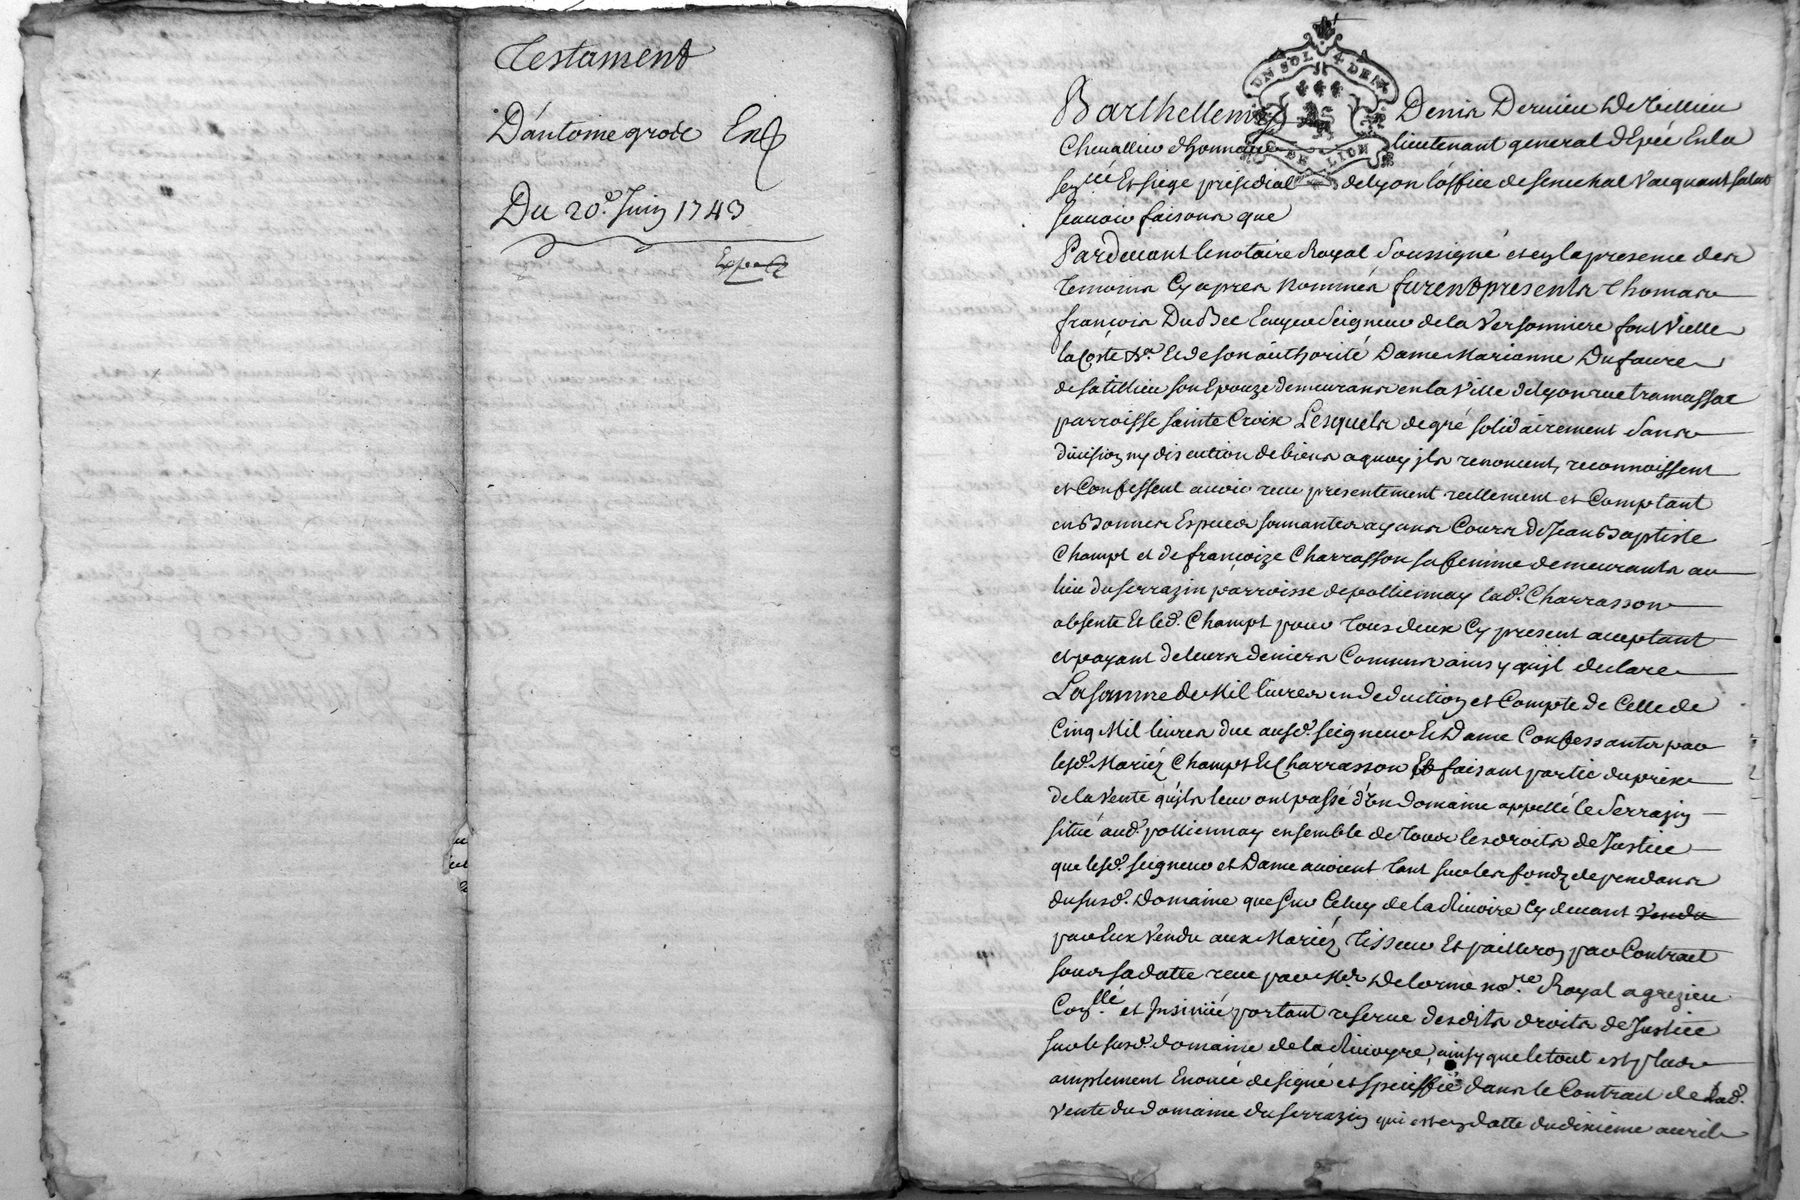 Testament
D'antoine groté
Du 20e. Juin 1743
Exped
UN SOL 4 DEN
DE LION
Barthellemy Denis Dervieu De Villieu
Chevallier d'honneur lieutenant general d'Epée En la
senchée Et siege présidial de Lyon l'office de senechal vacquant salut
scavoir faisons que
Pardevant le notaire Royal Soussigné et en la presence des
temoins Cy apres Nommés furent présents Thomas
françois Du Bec Ecuyer Seigneur de la Versonniere font Vielle
la Coste &a. Et de son authorité Dame Marianne Dufaure
de satillieu son Epouze demeurans en la Ville de Lyon rue tramassac
parroisse sainte Croix Lesquels de gré solidairement Sans
division ny discution de biens a quoy ils renoncent, reconnoissent
et Confessent avoir receu presentement reellement et Comptant
en Bonnes Especes sonnantes ayans Cours de Jean Baptiste
Champt et de françoize Charrasson sa femme demeurants au
lieu du serrazin parroisse de polliennay lad. Charrasson
absente Et led. Champt pour tous deux Cy présent acceptant
et payant de leurs deniers Communs ainsy qu'jl declare
La somme de Mil livres en deduction et Compte de Celle de
Cinq Mil livres due ausd. seigneur Et Dame Confessants par
lesd. Mariéz Champt Et Charrasson Et faisant partie du prix
de la Vente qu'jls leur ont passé d'un domaine appellé le Serrazin
situé aud. polliennay ensemble de tous les droits de Justice
que lesd. seigneur et Dame avoient tant sur les fondz dependans
du susd. Domaine que sur Celuy de la Rivoire Cy devant vendu
par Eux Vendu aux Mariéz Tisseur Et pailleron par Contract
sous sa datte receu par Me. Delorme nore. Royal a grezieu
Conllé. et Insinué portant reserve desdits droits de Justice
sur le susd. domaine de la Rivoyre, ainsy que le tout est plus
amplement Enoncé designé et speciffié dans le Contract de lad.
Vente du domaine du serrazin qui est en datte du dixieme avril